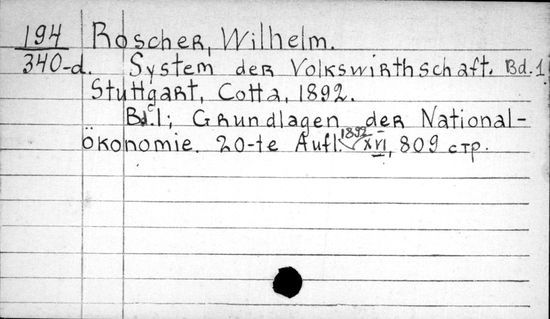 194 Roscher, Wilhelm.
340-d. System der Volkswirthschaft. Bd.1
Stuttgart, Cotta, 1892.
Bd.1; Grundlagen der National-
ökonomie. 20-te Aufl. 1892 XVI, 809 стр.